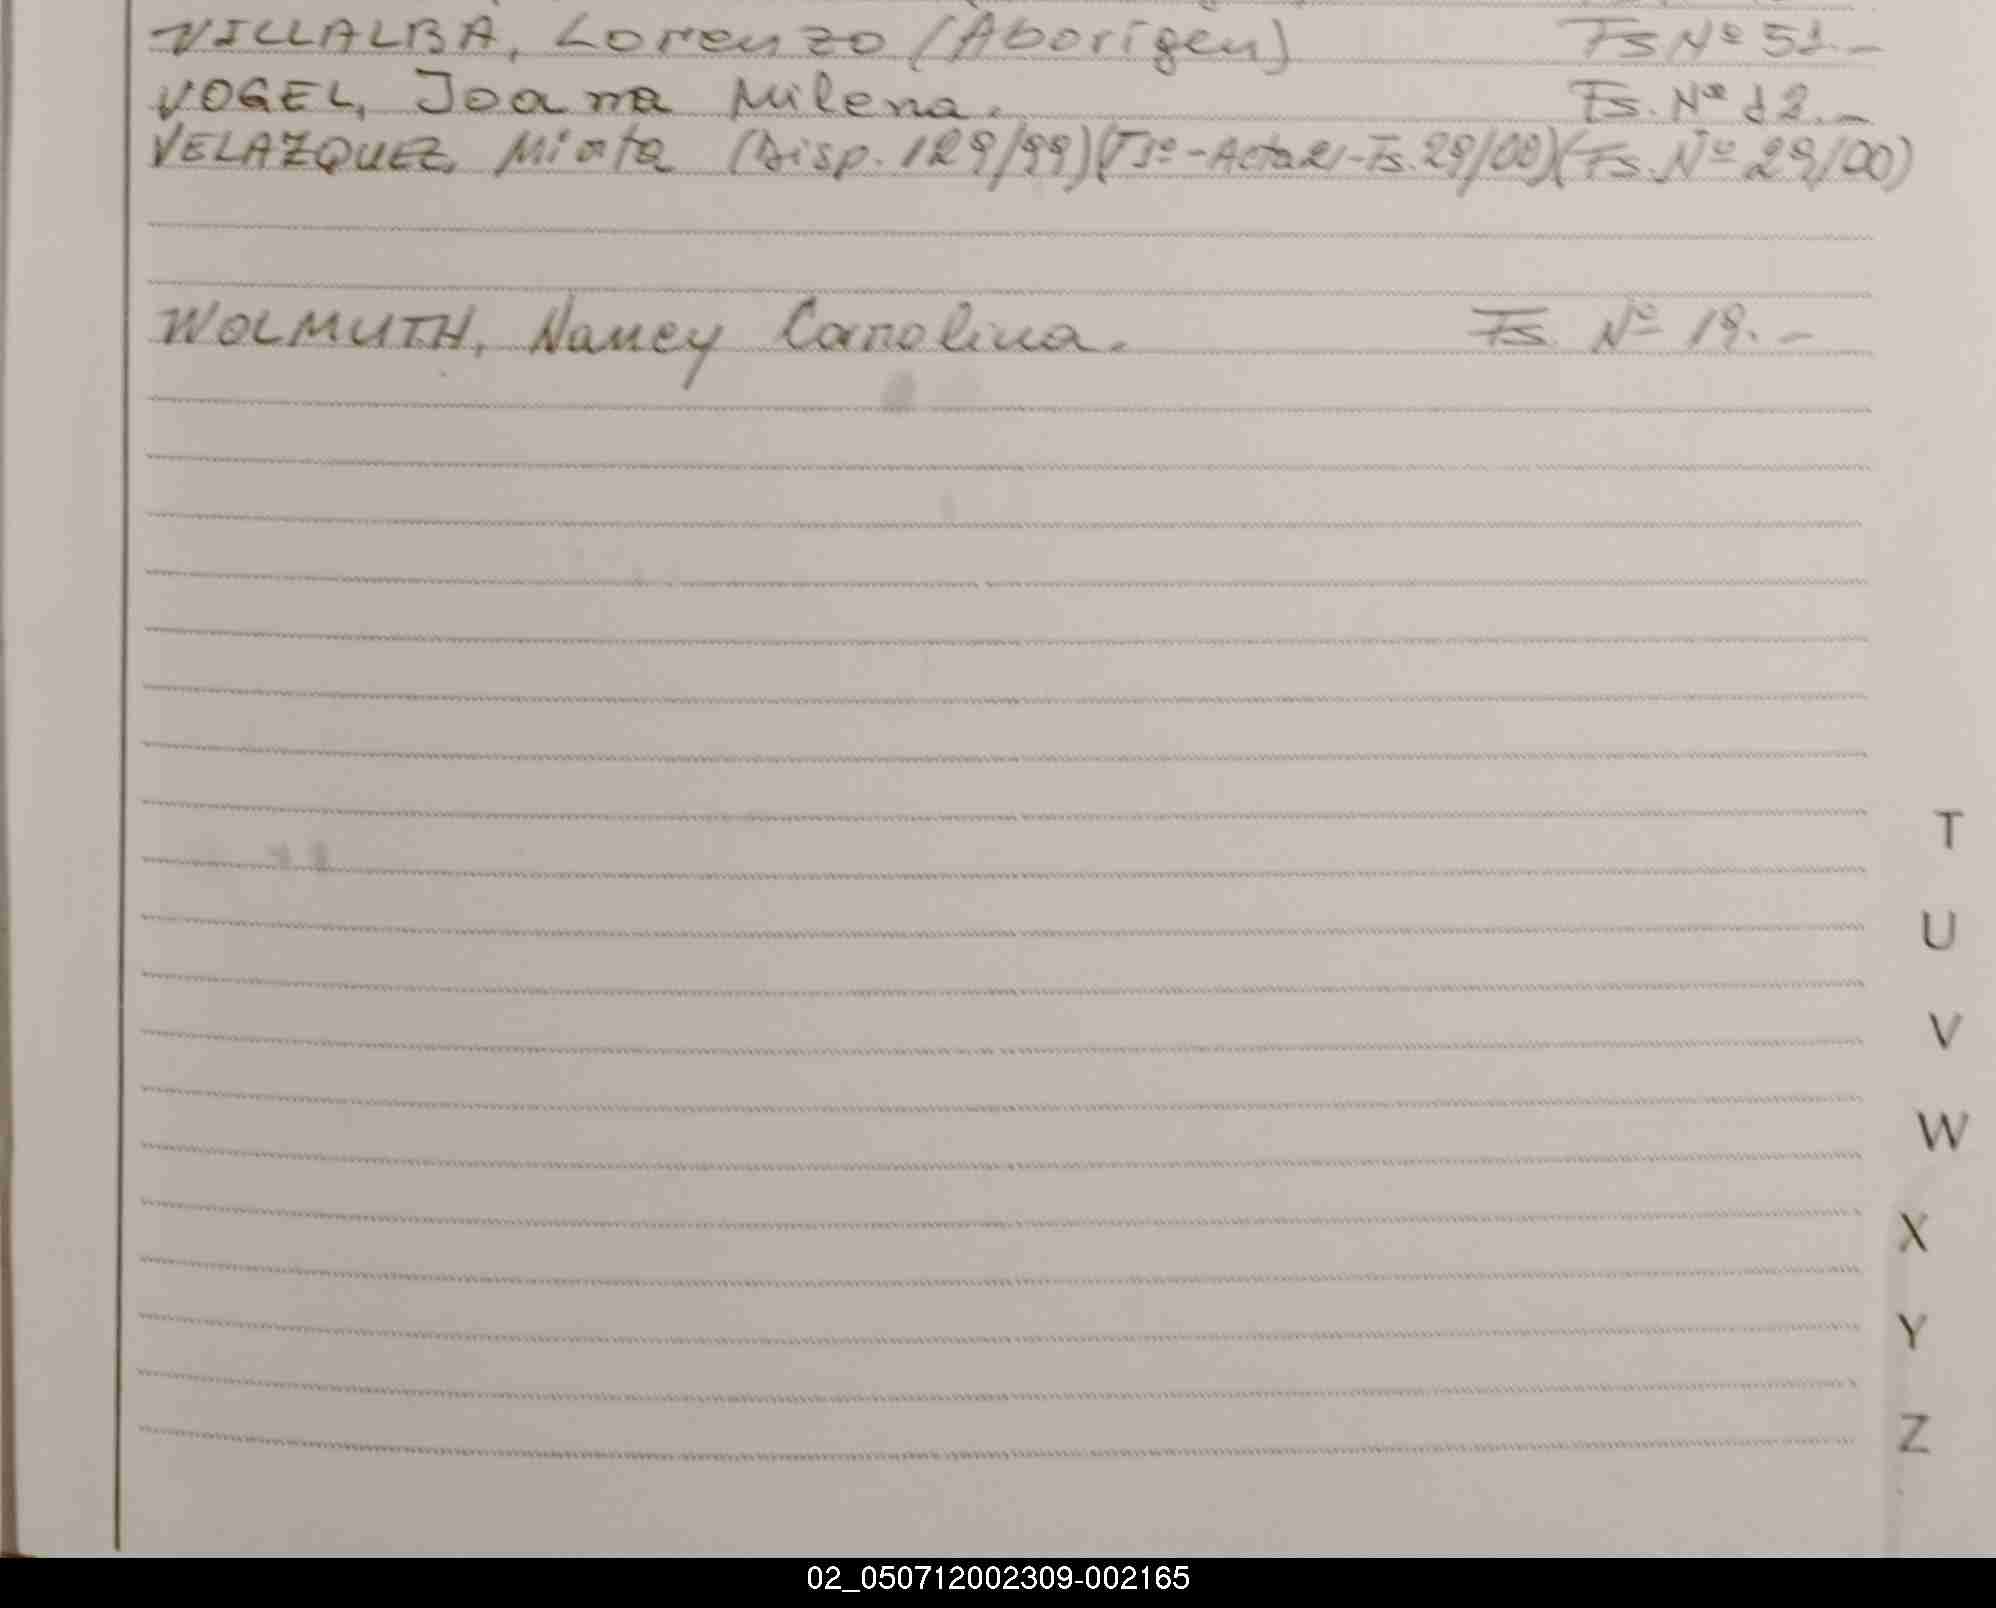 VILLALBA, Lorenzo (Aborigen) Fs Nº 51.-
VOGEL, Joana Milena. Fs. Nº 12.-
VELAZQUEZ, Mirta (Disp. 129/99)(Tº-Acta 21-Fs. 29/00)(Fs. Nº 29/00)
WOLMUTH, Nancy Carolina. Fs. Nº 19.-
T
U
V
W
X
Y
Z
02_050712002309-002165